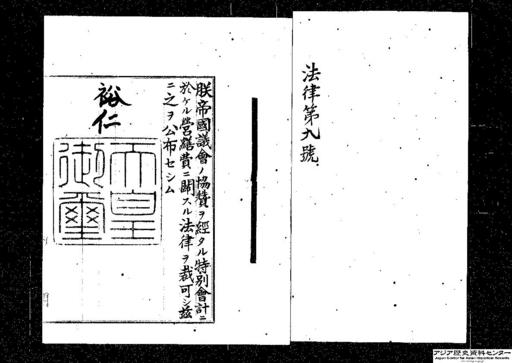 法律第九號
朕帝國議會ノ協贊ヲ經タル特別會計ニ
於ケル營繕費ニ關スル法律ヲ裁可シ茲
ニ之ヲ公布セシム
裕仁
天皇
御璽
アジア歴史資料センター
Japan Center for Asian Historical Records